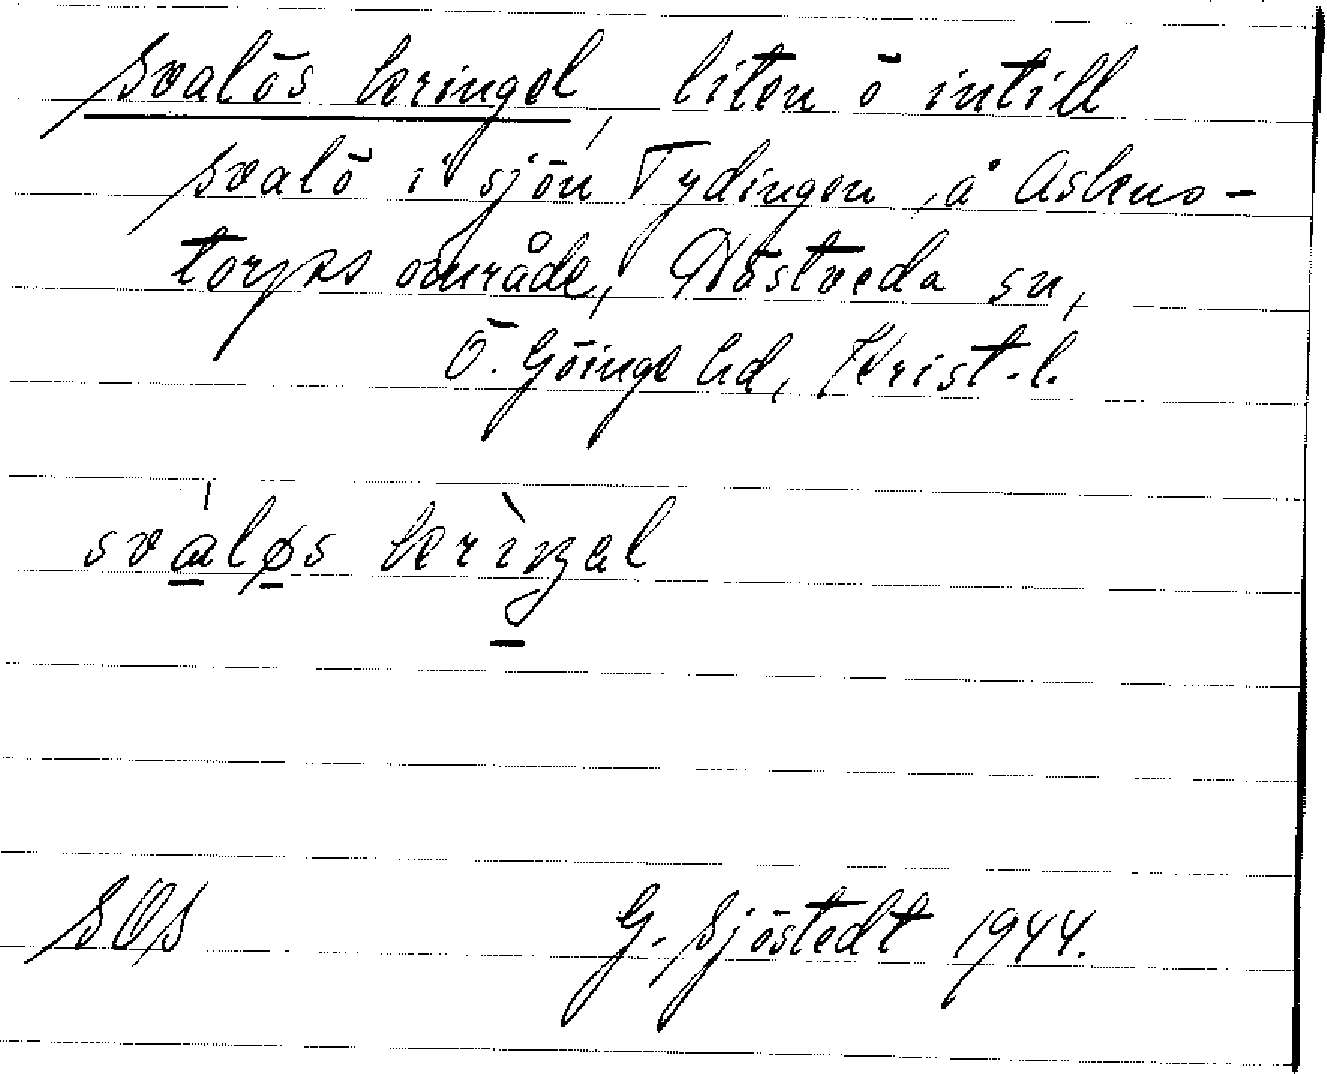 Svalös kringel liten ö intill
Svalö i sjön Tydingen, å Askens-
torps område, Hästveda sn,
Ö. Göinge hd, Krist-l.
sváløs krìŋəl
SOS G. Sjöstedt 1944.